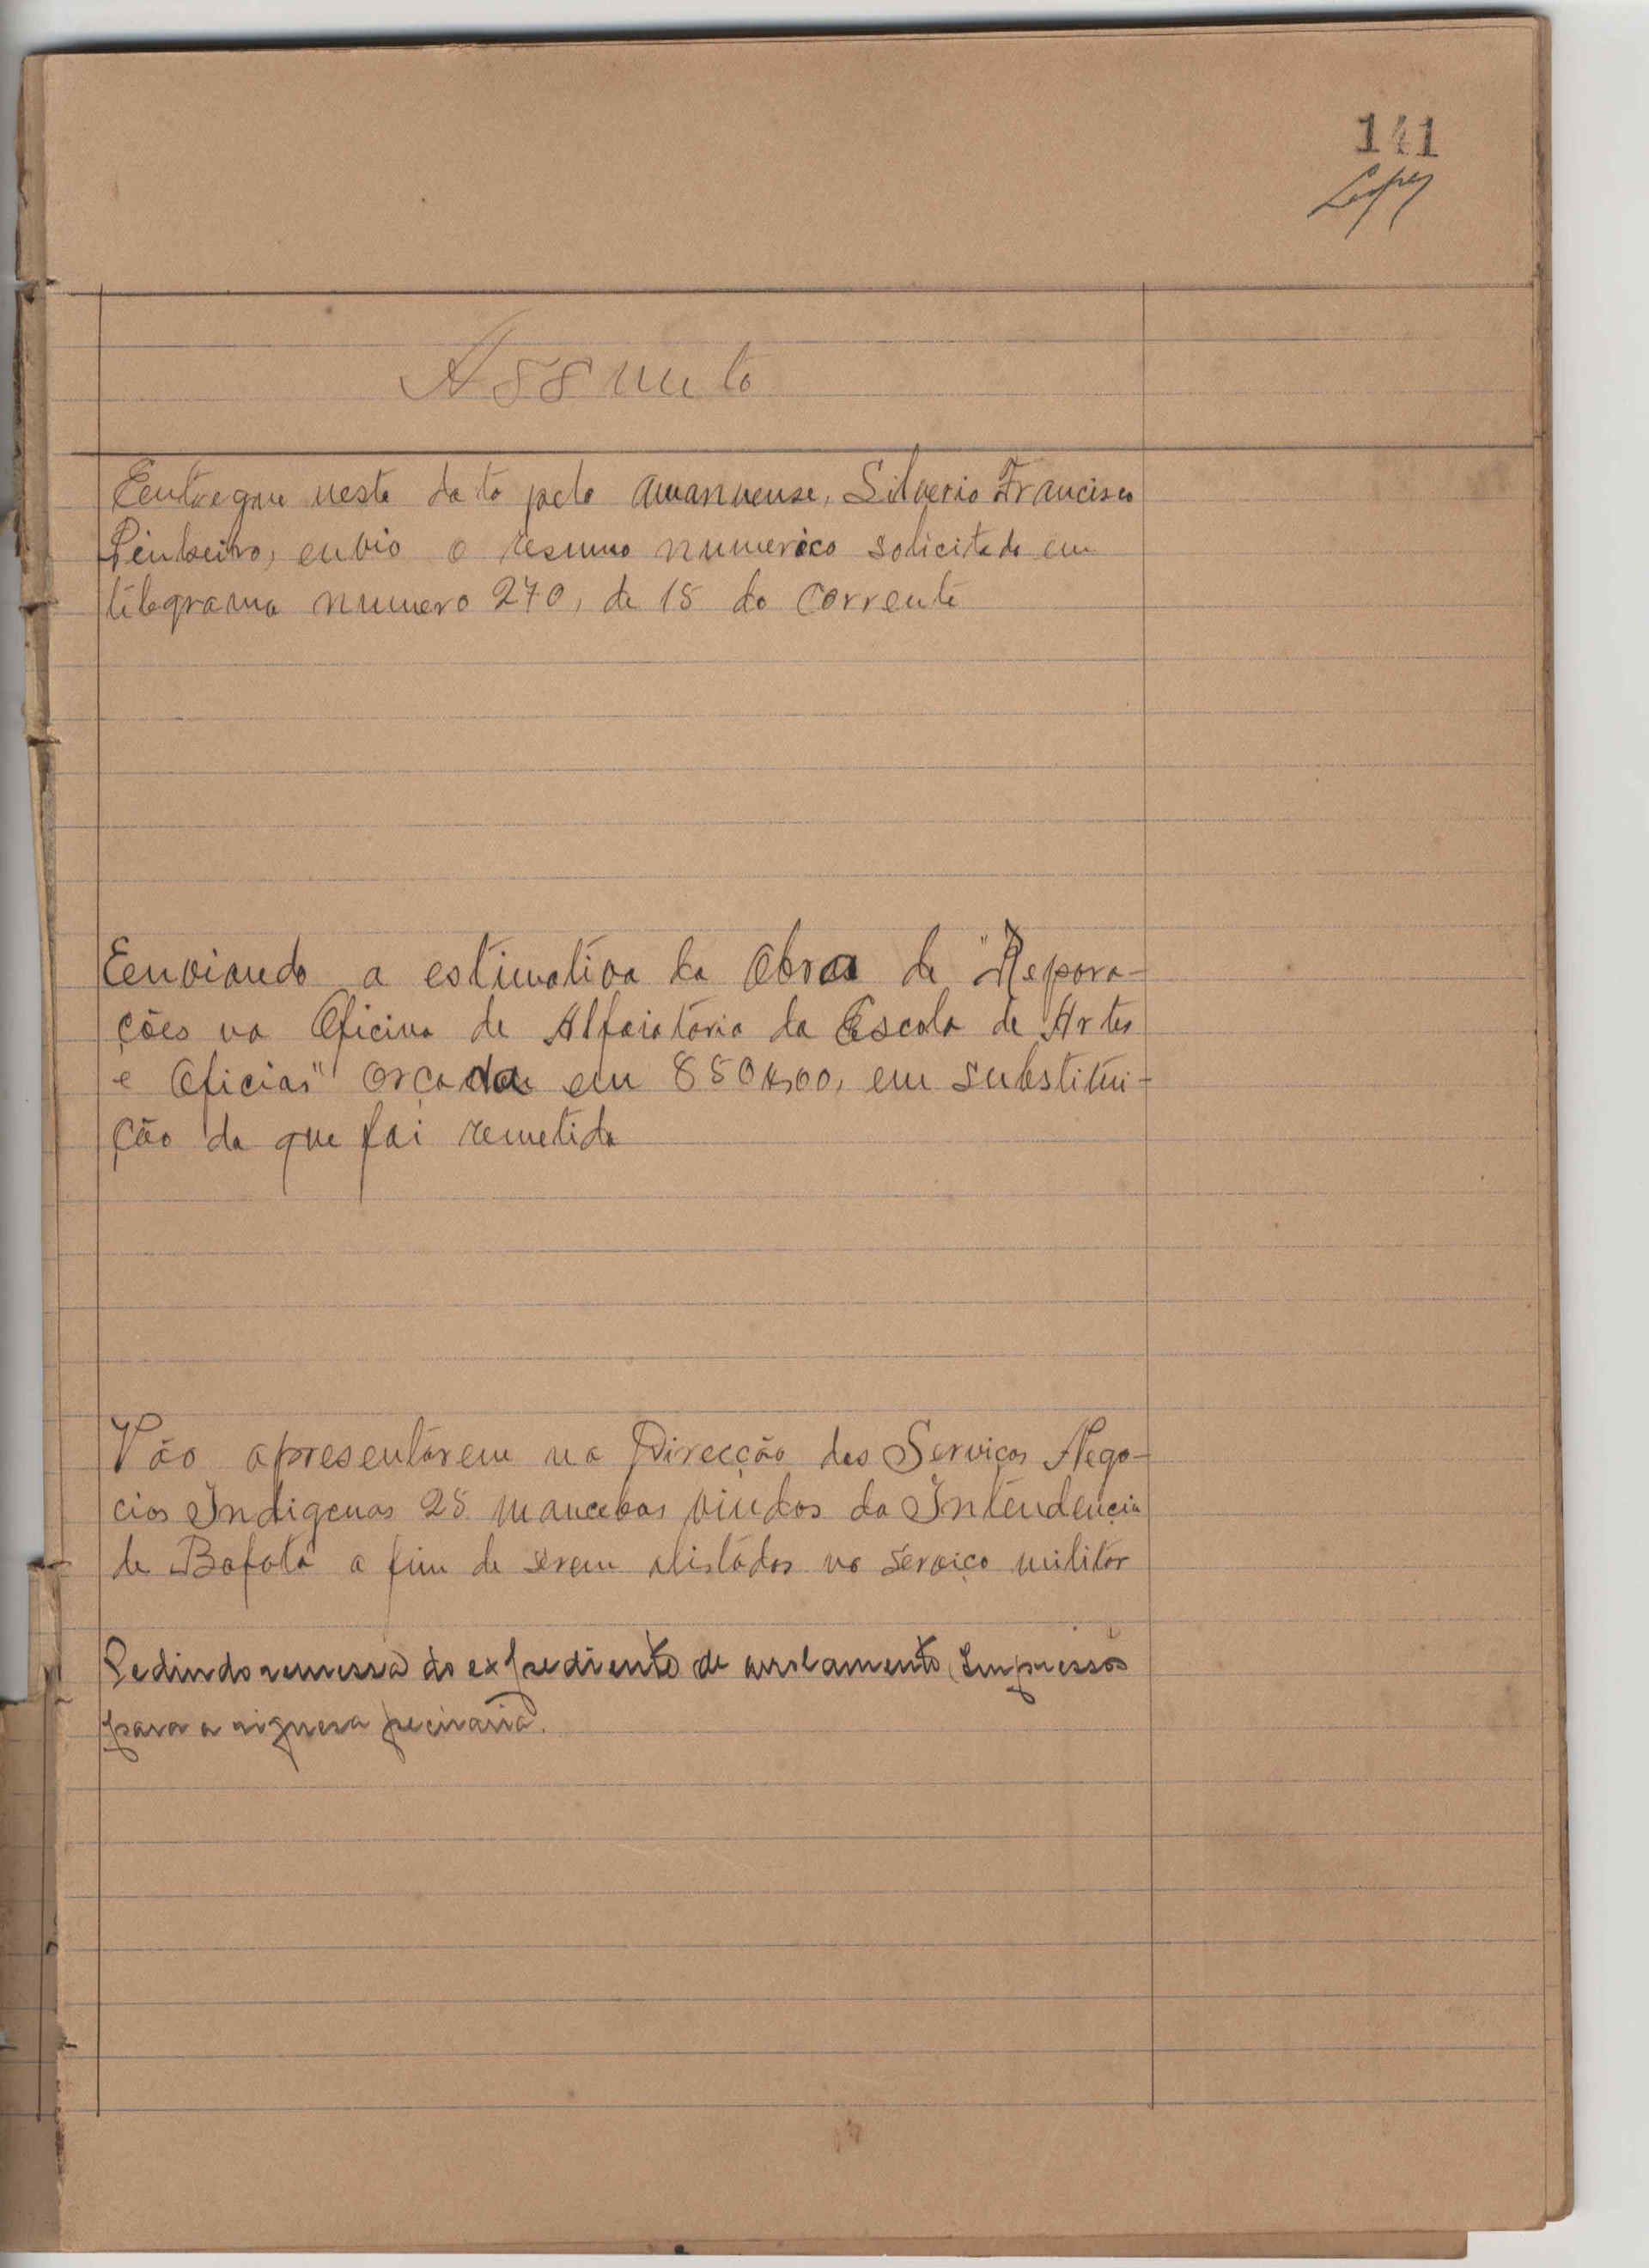 141
Lopes
Assunto
Eentregue nesta data pelo amanuense, Silverio Francisco
Pinheiro, envio o resumo numerico solicitado em
telegrama numero 270, de 15 do corrente
Eenviando a estimativa da obra de "Repara-
ções na Oficina de Alfaiataria da Escola de Artes
e Oficias" orçada em 850$00, em substitui-
ção da que foi remetida
Vão apresentarem na Direcção dos Serviços Nego-
cios Indigenas 25 mancebos vindos da Intendencia
de Bafatá a fim de serem alistados no serviço militar
Pedindo remessa do expediente de arrolamento, Impressos
para a riquesa pecuaria.